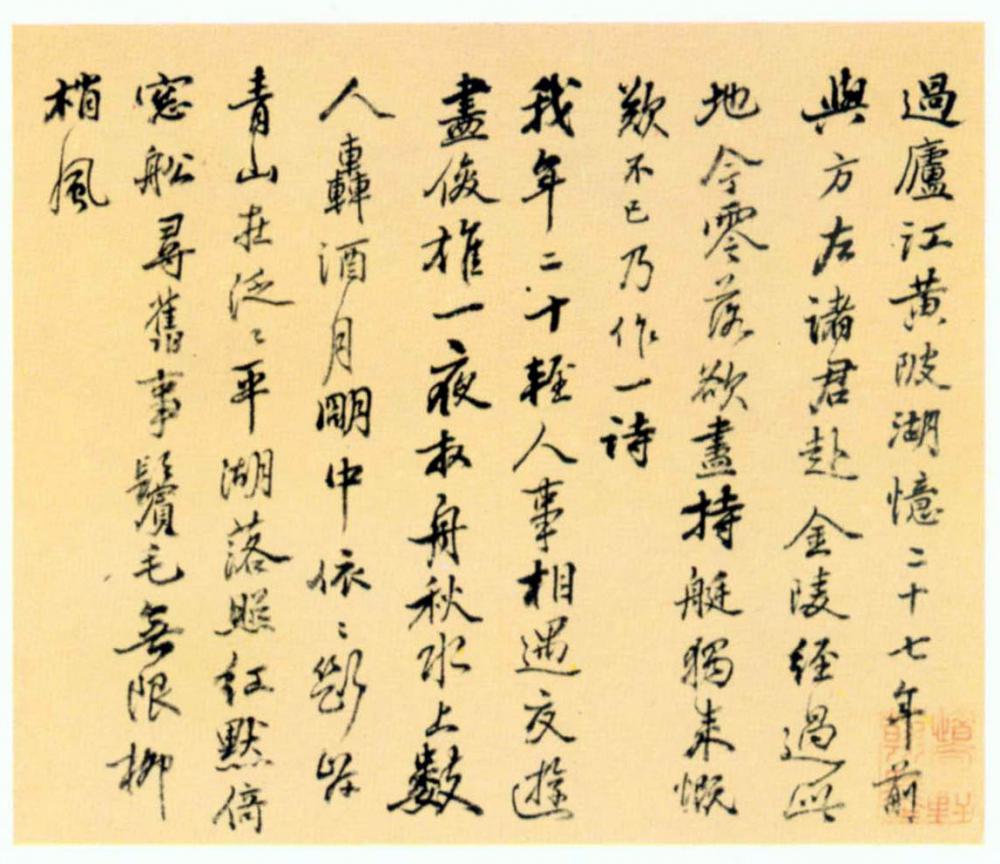 過廬江黃陂湖憶二十七年前
與方左諸君赴金陵經過此
地今零落欲盡持艇獨來慨
歎不已乃作一詩
我年二十輕人事相遇交遊
盡俊雄一夜舟秋水上數
人轟酒月朙中依〻斷岸
青山在泛〻平湖落照紅默倚
窓船尋舊事鬢毛無限柳
梢風